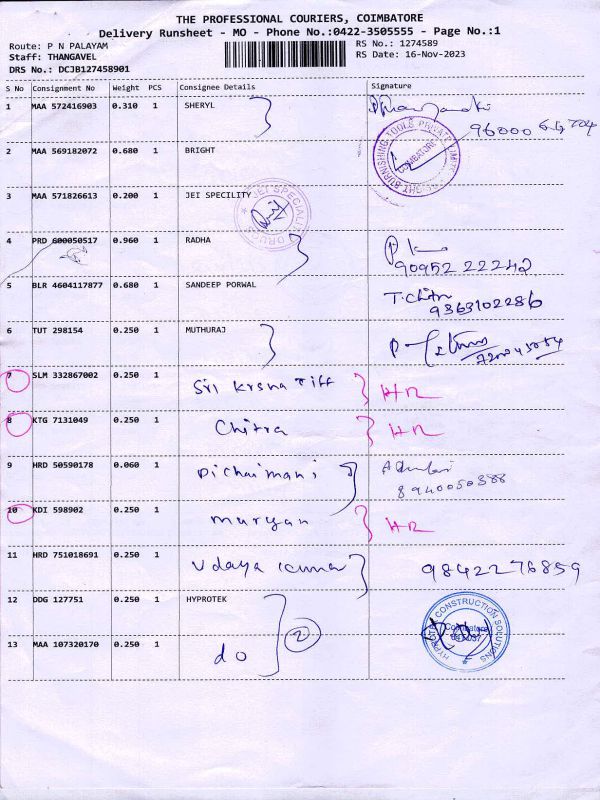 THE PROFESSIONAL COURIERS, COIMBATORE
Delivery Runsheet - MO - Phone No.:0422-3505555 - Page No.:1
Route: P N PALAYAM RS No.: 1274589
Staff: THANGAVEL RS Date: 16-Nov-2023
DRS No.: DCJB127458901
S No Consignment No Weight PCS Consignee Details Signature
1 MAA 572416903 0.310 1 SHERYL
96000
2 MAA 569182072 0.680 1 BRIGHT
TOOLS PRIVATE LIMITED
COIMBATORE
3 MAA 571826613 0.200 1 JEI SPECILITY
JEI SPECIALITY DRUGS
4 PRD 600050517 0.960 1 RADHA
90952 22242
5 BLR 4604117877 0.680 1 SANDEEP PORWAL T. Chitra
9363102286
6 TUT 298154 0.250 1 MUTHURAJ
7 SLM 332867002 0.250 1 Sri Krsna Tiff HR
8 KTG 7131049 0.250 1 Chitra HR
9 HRD 50590178 0.060 1 Pichaimani
8940050588
10 KDI 598902 0.250 1 Murgan HR
11 HRD 751018691 0.250 1 Udaya Kumar 9842276859
12 DDG 127751 0.250 1 HYPROTEK
2
HYPROTEK CONSTRUCTION SOLUTIONS
Coimbatore
13 MAA 107320170 0.250 1 do